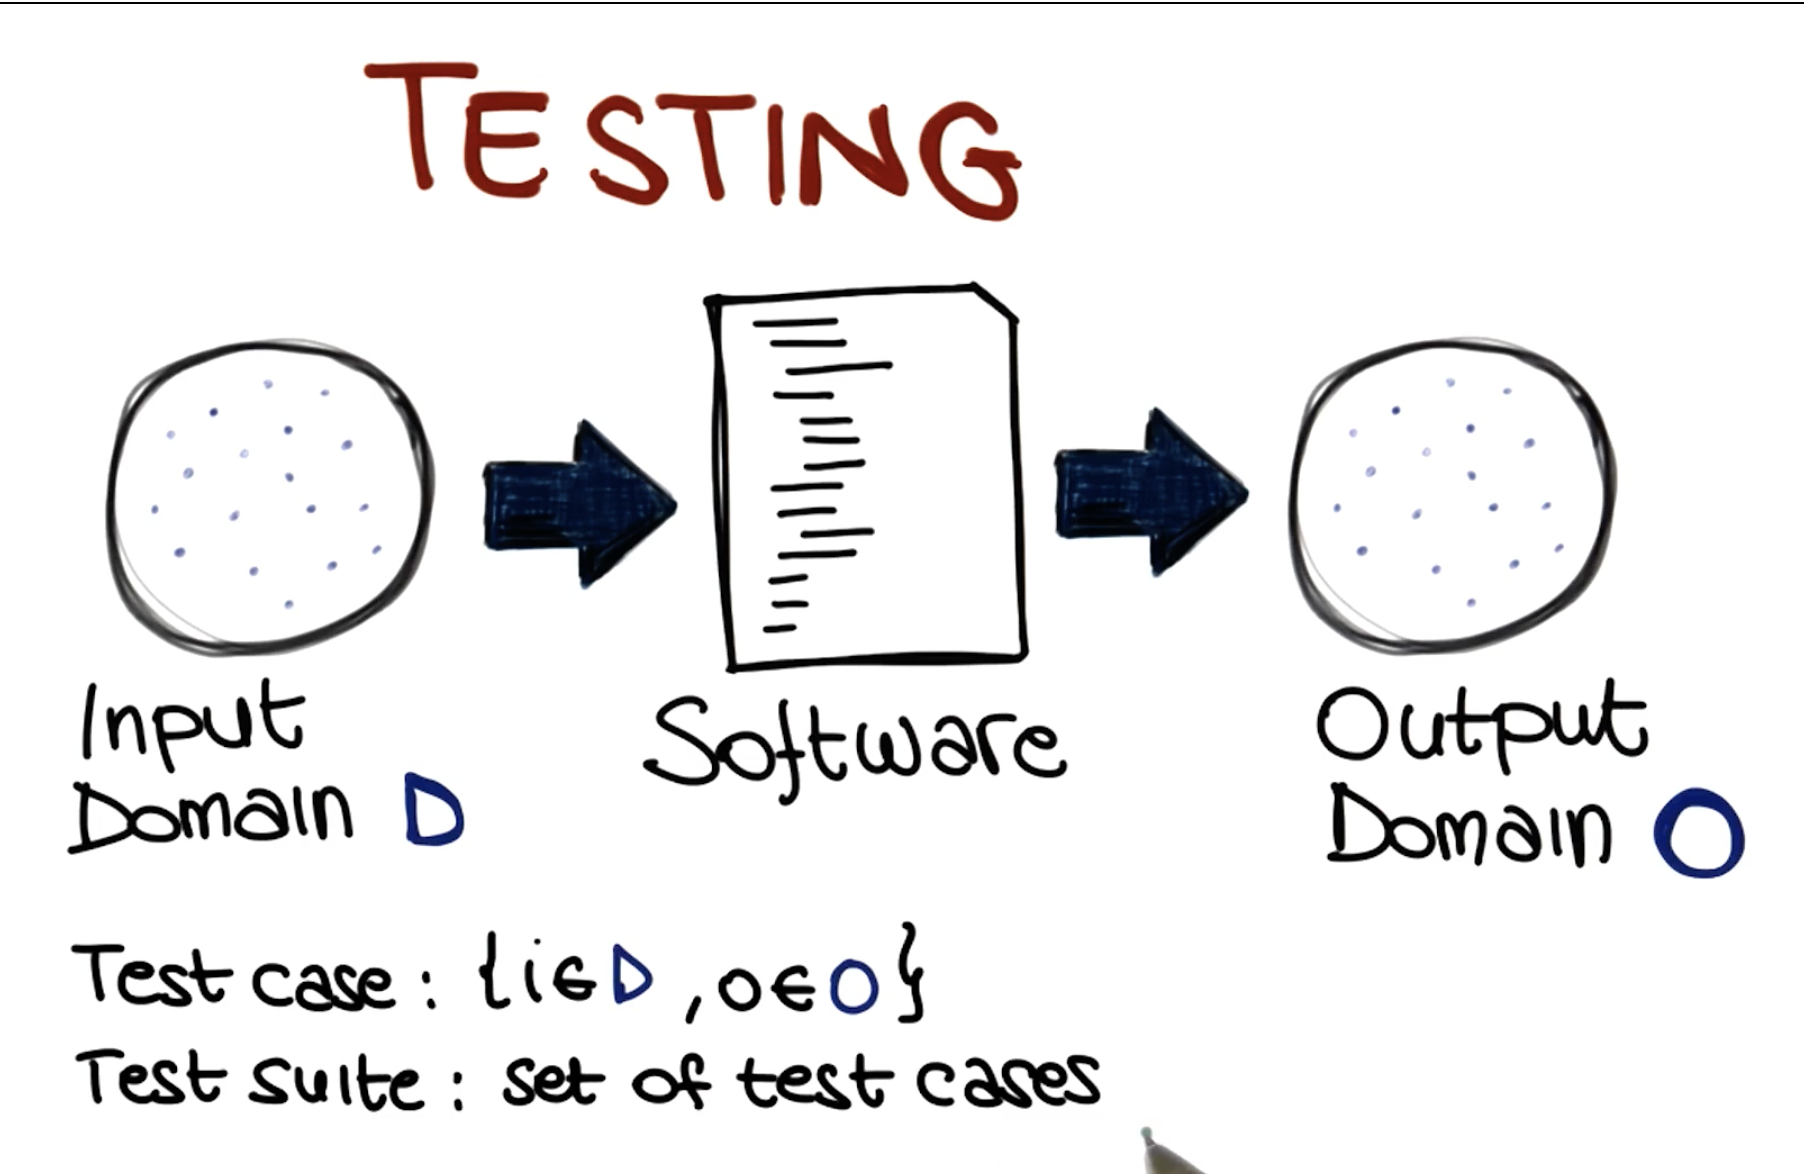 TESTING
Input
Domain D
Software
Output
Domain O
Test case: {i∈D, o∈O}
Test suite: set of test cases